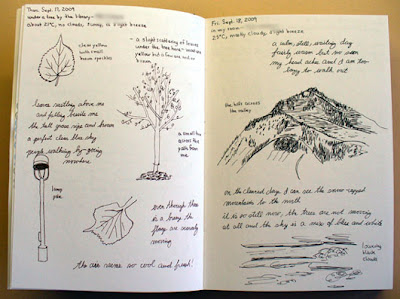 Thur. Sept. 17, 2009
under a tree by the library
about 23°C, no clouds, sunny, a slight breeze
clear yellow
with small
brown speckles
a slight scattering of leaves
under the tree here - most are
yellow but a few are more
brown
leaves rustling above me
and falling beside me
the tall grass ripe and brown
a perfect clear blue sky
people walking by going
somewhere
a small tree
across the
path from
me
lamp
post
even though there
is a breeze the
flags are scarcely
moving
the air seems so cool and fresh!
Fri. Sept. 18, 2009
in my room
23°C, mostly cloudy, slight breeze
a calm, still waiting day
fairly warm but no sun
my head aches and I am too
lazy to walk out
the hills across
the valley
on the clearest days I can see the snow-capped
mountains to the north
it is so still now, the trees are not moving
at all and the sky is a mix of blue and white
lowering
black
clouds